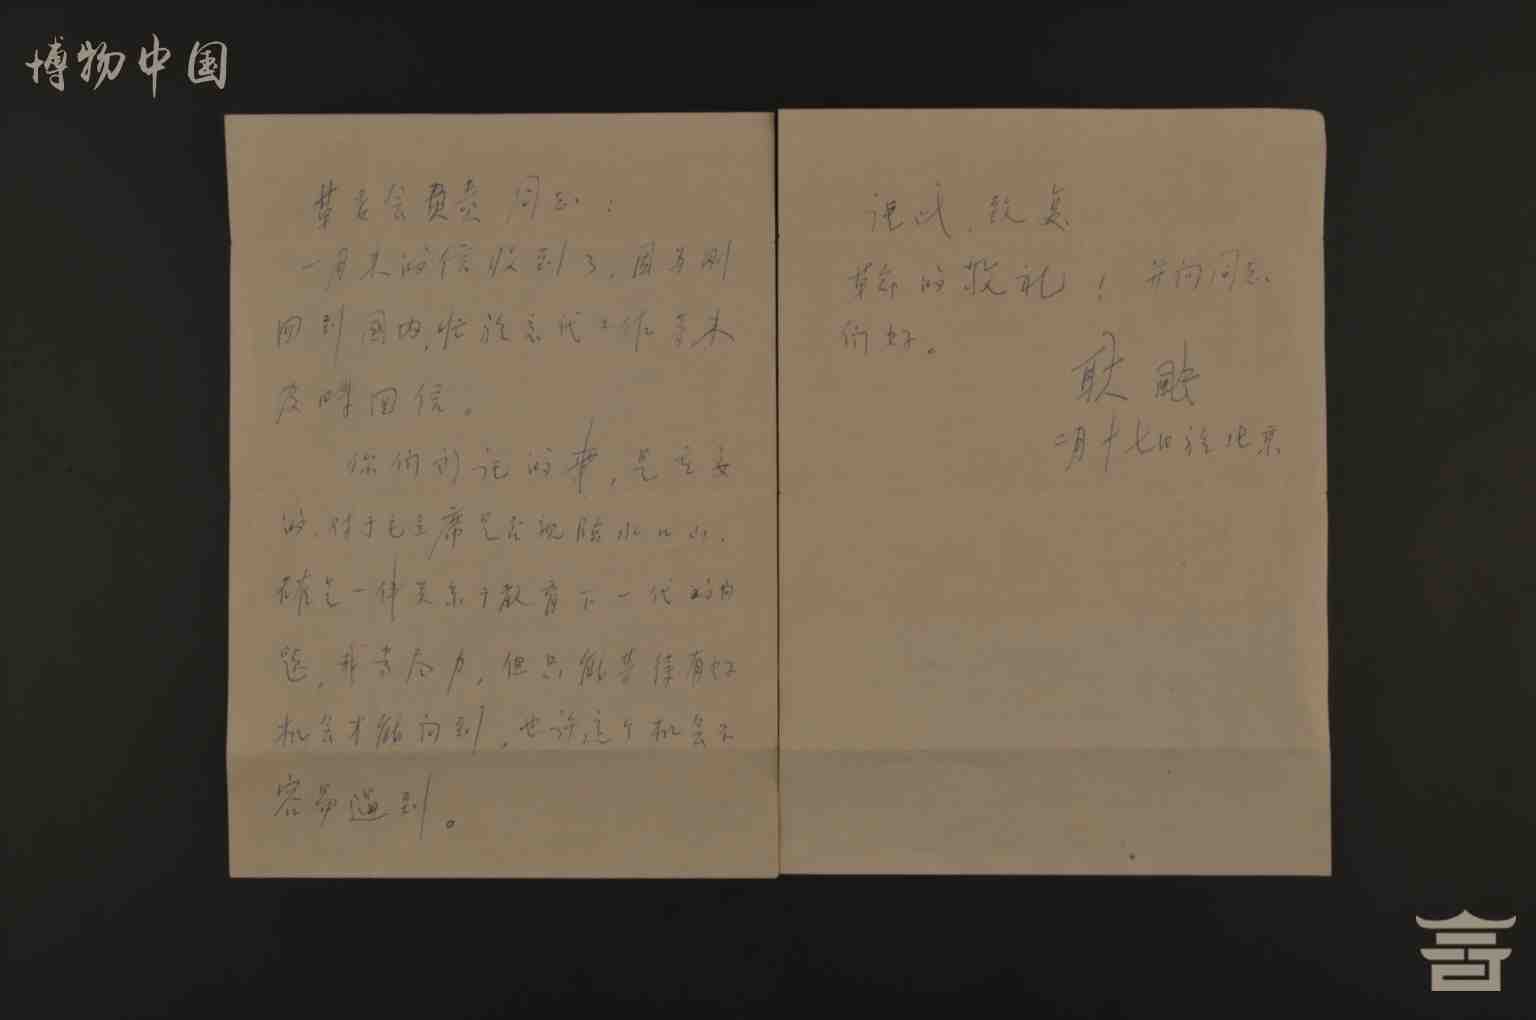 博物中国
革委会负责同志：
一月来的信收到了，因为刚
回到国内，忙于交代工作等未
及时回信。
你们所说的事，是重要
的，对于毛主席是否视临水口山，
确是一件关系于教育下一代的问
题，我当尽力，但只能等待有好
机会才能问到，也许这个机会不
容易逼到。
说此，致复
革命的敬礼！并向同志
们好。
耿飚
二月十七日于北京